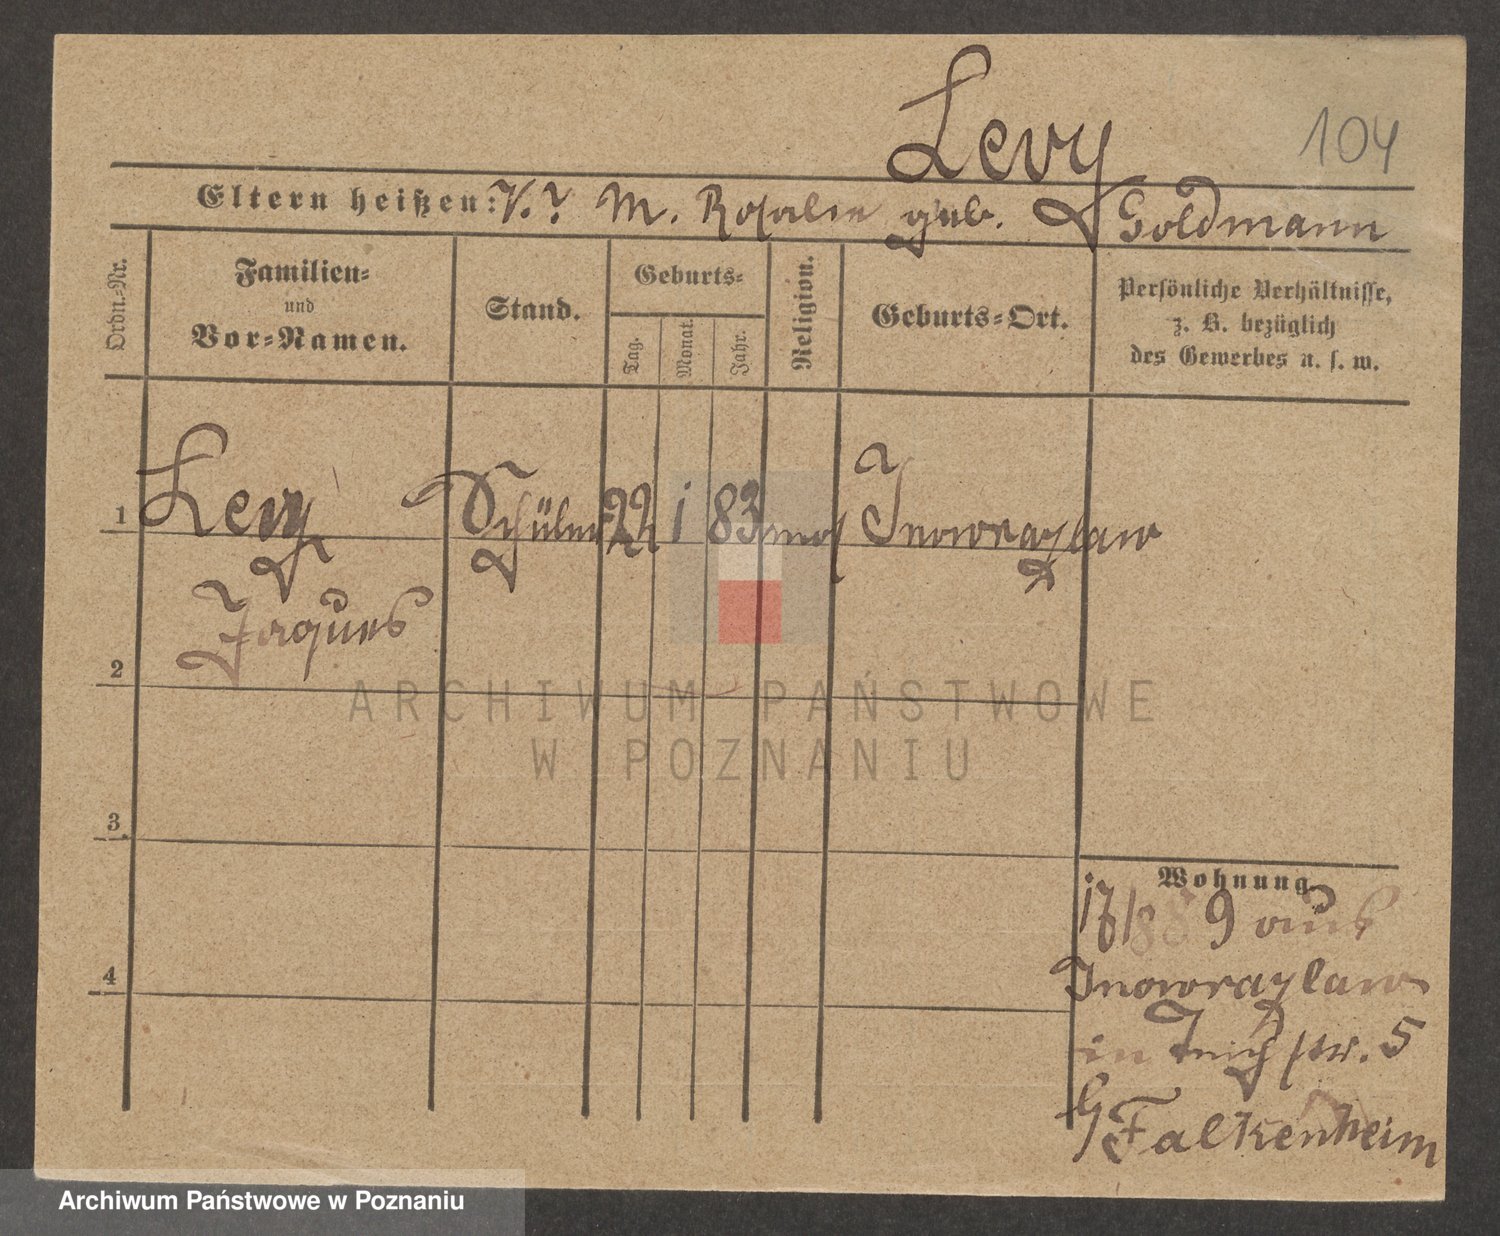 Levy
104
Eltern heißen: V. ? M. Rosalie geb. Goldmann
Ordn.-Nr.
Familien-
und
Vor-Namen.
Stand.
Geburts-
Tag.
Monat.
Jahr.
Religion.
Geburts-Ort.
Persönliche Verhältnisse,
z. B. bezüglich
des Gewerbes u. s. w.
1 Levy Schüler 22 1 83 mos Inowrazlaw
Jaques
2
3
4
Wohnung
aus
Inowrazlaw
in Teichstr. 5
b/Falkenheim
ARCHIWUM PAŃSTWOWE
W POZNANIU
Archiwum Państwowe w Poznaniu